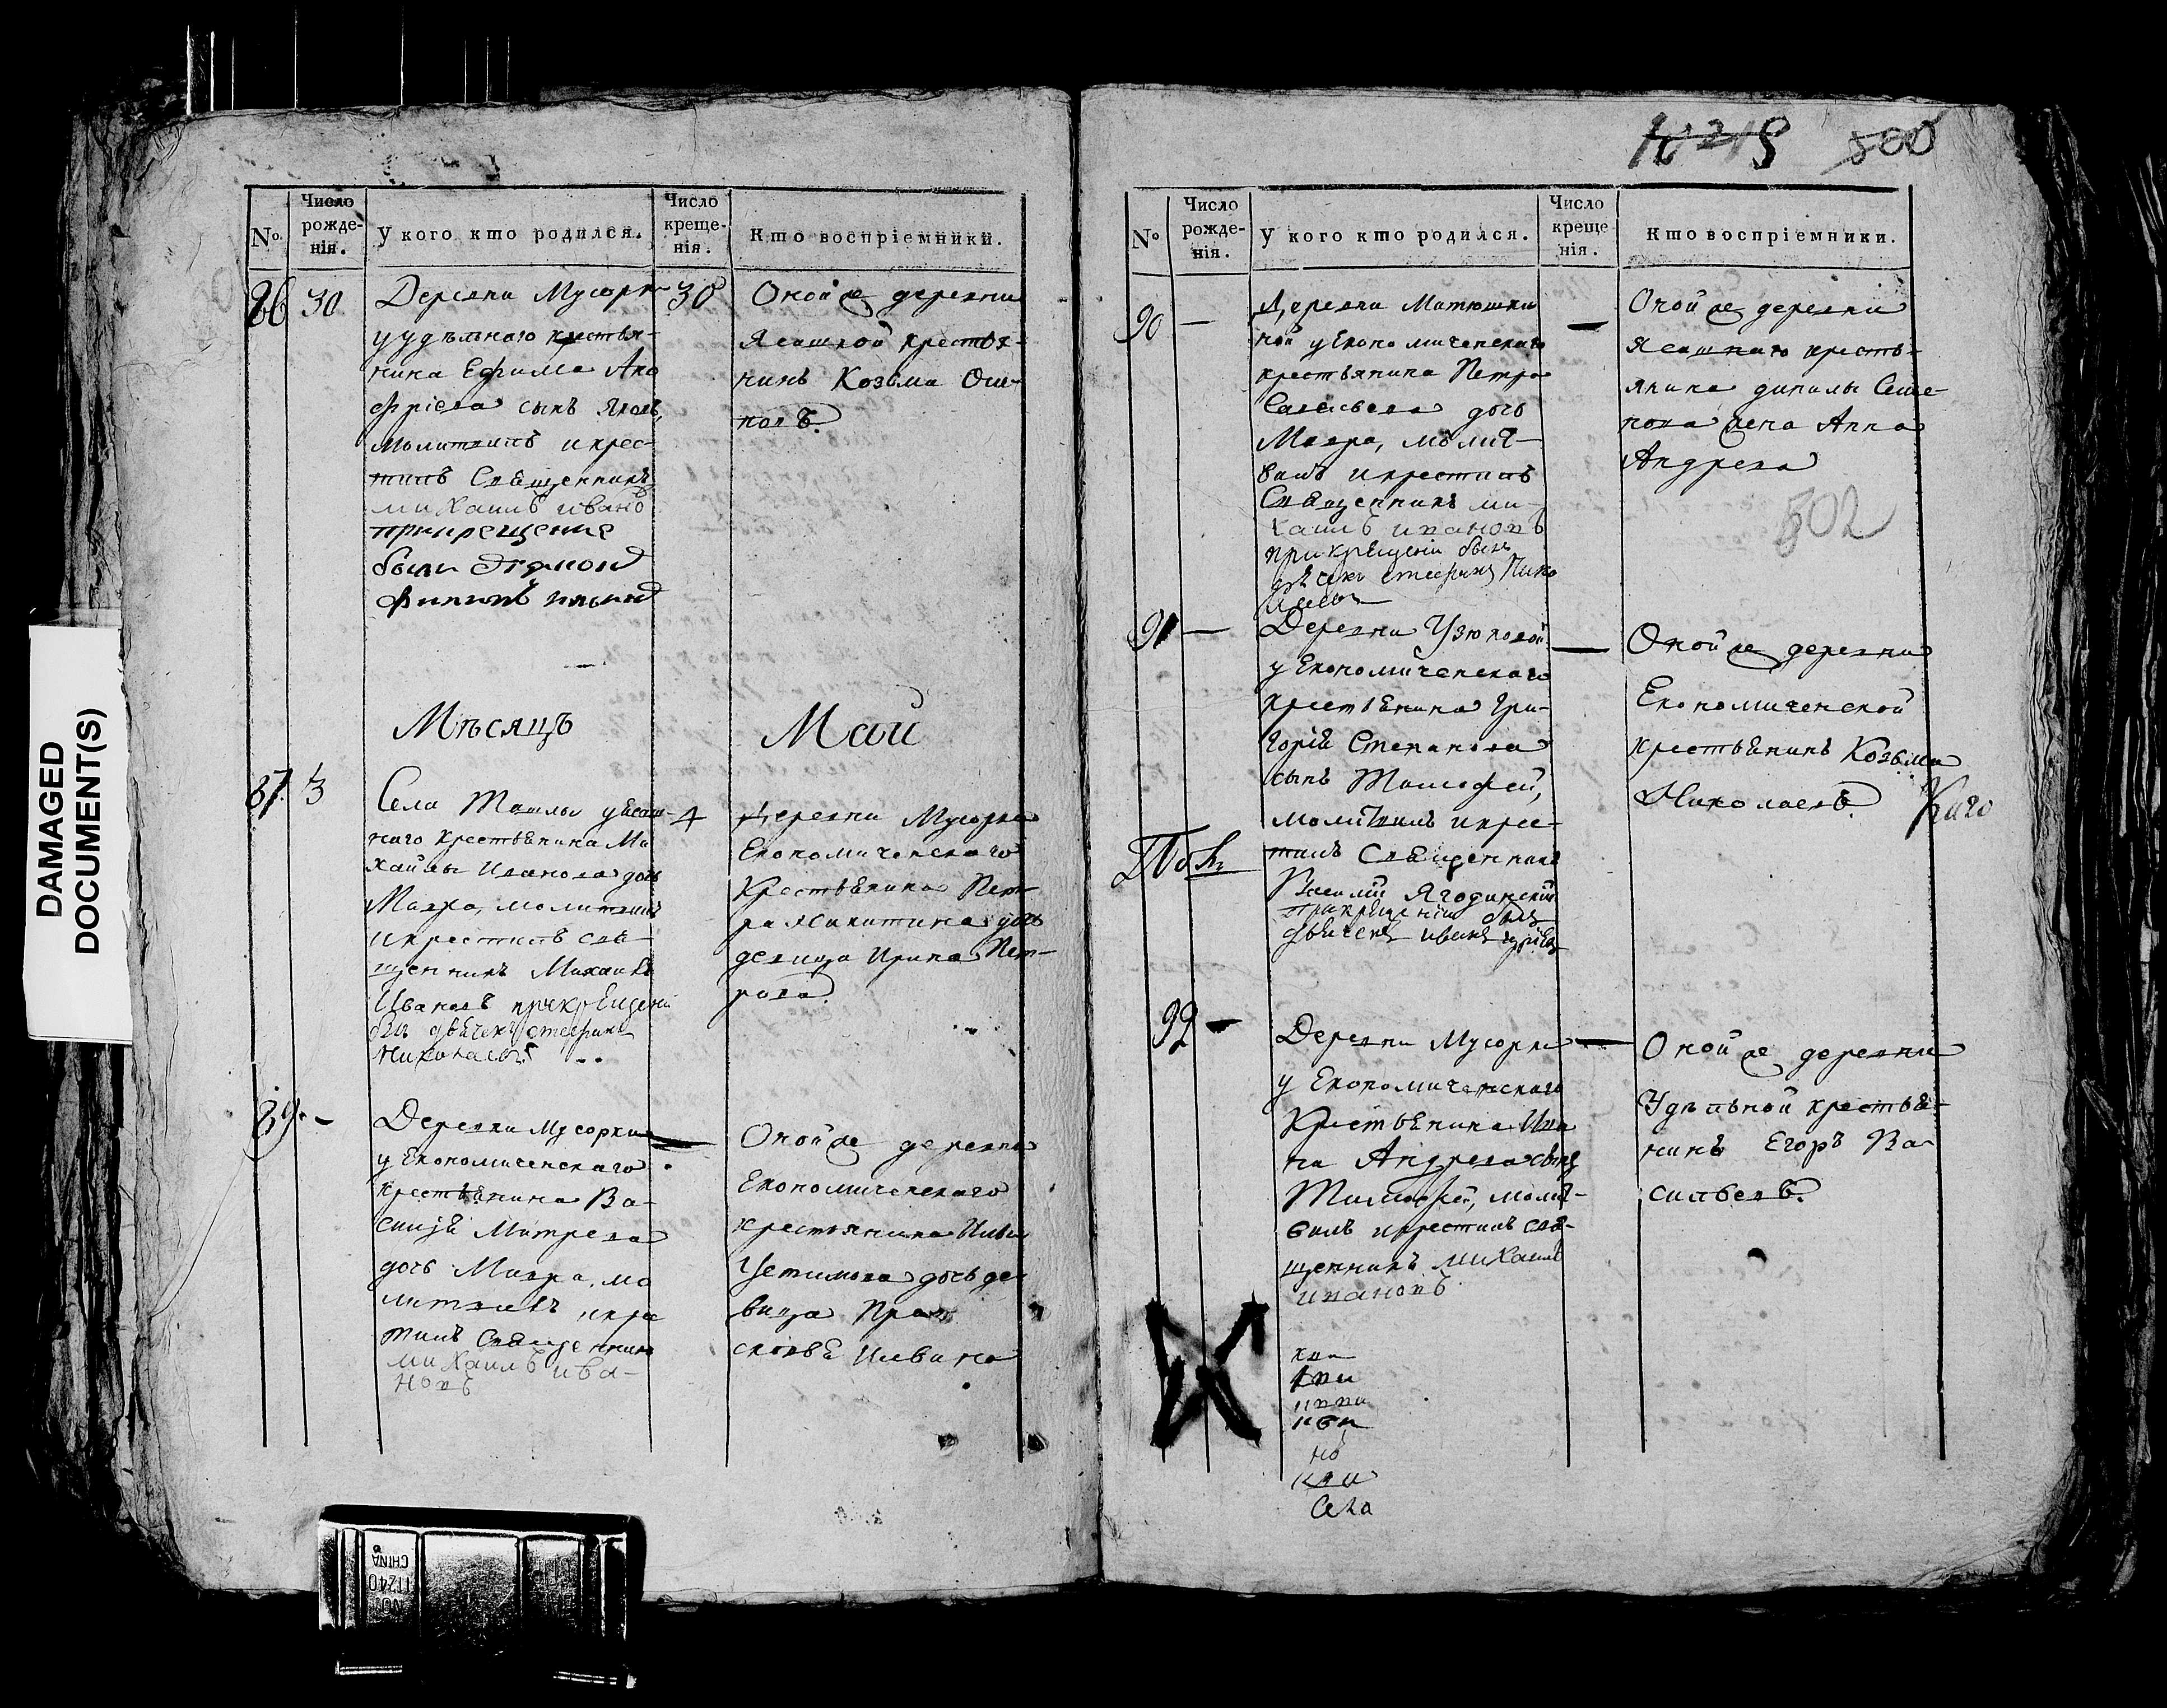 DAMAGED
DOCUMENT(S)
№.
Число
рожде-
нія.
У кого кто родился.
Число
креще-
нія.
Кто воспріемники.
86
30
Деревни Мусорки
у удѣльнаго крестья-
нина Ефима Ано
фріева сынъ Яковъ,
молитвилъ и крес-
тилъ Священникъ
михаилъ ивано
прикрещение
были
30
Оной же деревни
Ясашной крестья-
нинъ Козьма Оси-
повъ.
Мѣсяцъ
Май
87.
3
Села Ташлы уясаш-
наго крестьянина Ми
хайлы Иванова дочь
Мавра, молитвилъ
и крестилъ свя-
щенникъ Михаилъ
Ивановъ прикрещеніи
былъ дьячекъ стефанъ
Николаевъ
4
Деревни Мусорки
Економическаго
Крестьянина Пет-
ра Никитина дочь
девица Ирина Пет-
рова.
89.
-
Деревни Мусорки
у Економическаго
крестьянина Ва-
силья Митрева
дочь Мавра, мо
литвилъ икрес
тилъ Священник
михаилъ ива-
новъ
Оной же деревни
Економическаго
крестьянина Ильи
Устимова дочь де-
вица Прас
ковья Ильина
500
№
Число
рожде-
нія.
У кого кто родился.
Число
креще
нія.
Кто воспріемники.
90
—
Деревни Матюшки
ной у Економическаго
крестьянина Петра
Савельева дочь
Мавра, молит-
вилъ и крестилъ
Священникъ ми-
хаилъ ивановъ
при крещеніи былъ
стефанъ Нико
лаевъ
—
Оной же деревни
Ясашнаго кресть-
янина данилы Семе-
нова жена Анна
Андрева
502
91
—
Деревни Узюковой
у Економическаго
крестьянина Гри-
горія Степанова
сынъ Тимофей,
молитвилъ икрес-
тилъ Священникъ
Василій Ягодинский
прикрещеніи былъ
дьячекъ иванъ
—
Оной же деревни
Економической
крестьянинъ Козьма
Николаевъ.
92
—
Деревни Мусорки
у Економическаго
Крестьянина Ива
на Андрева сынъ
Тимофей, молит-
вилъ икрестилъ свя-
щенникъ михаилъ
ивановъ
—
Оной же деревни
Удѣльной крестья-
нинъ Егоръ Ва-
сильевъ.
но
Села